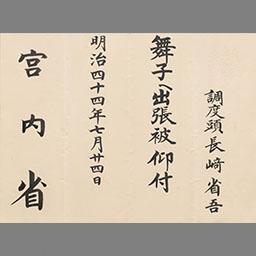 調度頭長崎省吾
舞子へ出張被仰付
明治四十四年七月廿四日
宮内省